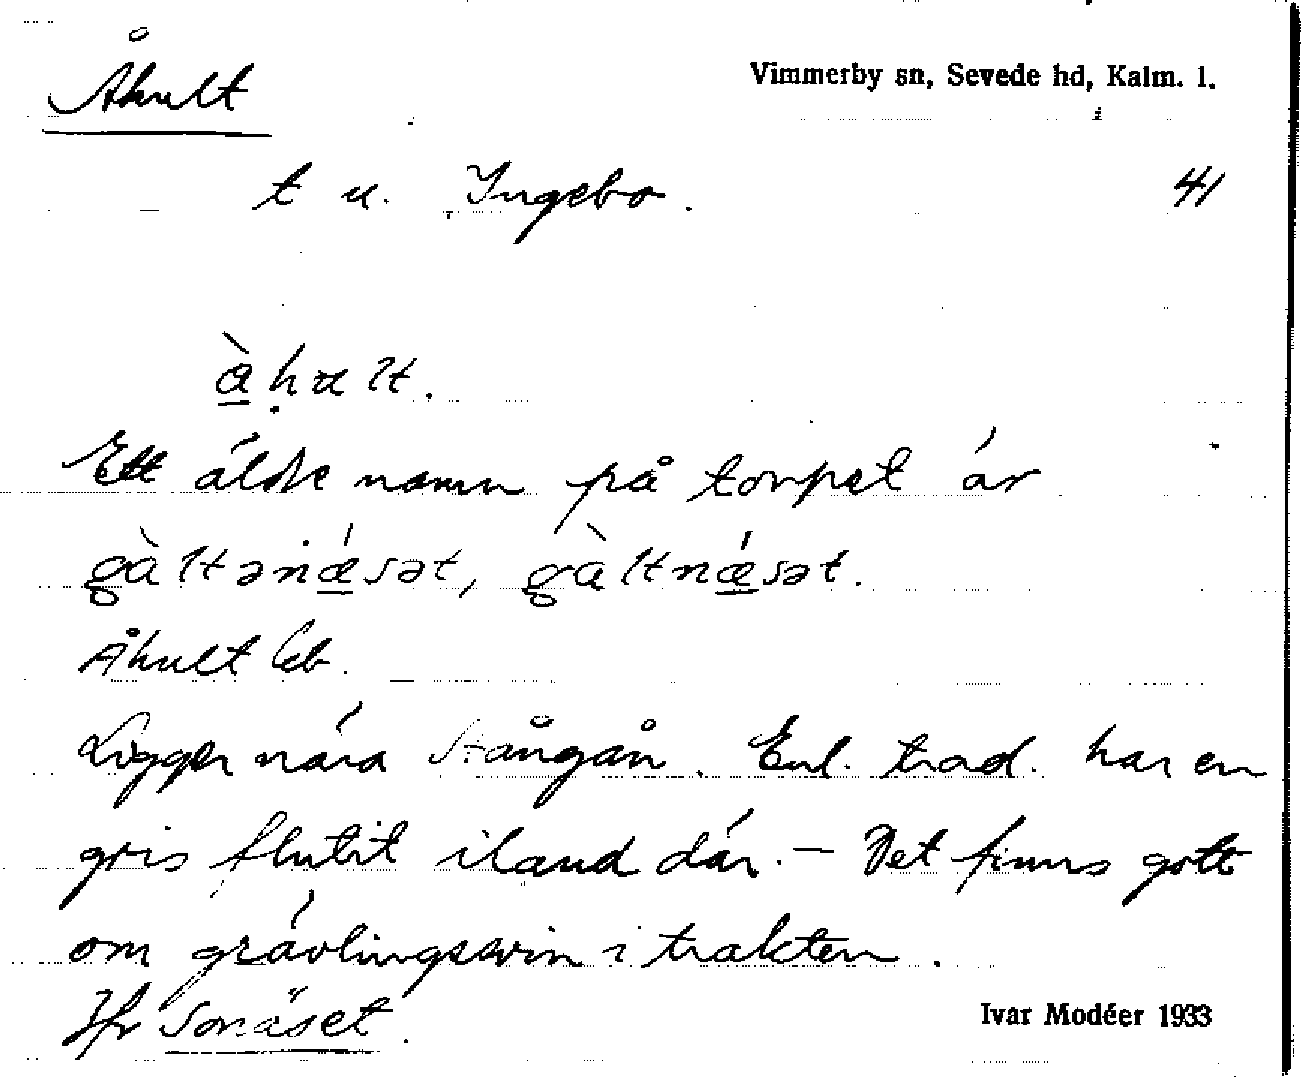 Åhult
Vimmerby sn, Sevede hd, Kalm. l.
t u. Ingebo.
41
à̲ḥult.
Ett äldre namn på torpet är
gàltənǽ̲sət, gàltnǽ̲sət.
Åhult Cb.
Ligger nära Stångån. Enl. trad. har en
gris flutit iland där. — Det finns gott
om grävlingssvin i trakten.
Jfr Sonäset.
Ivar Modéer 1933